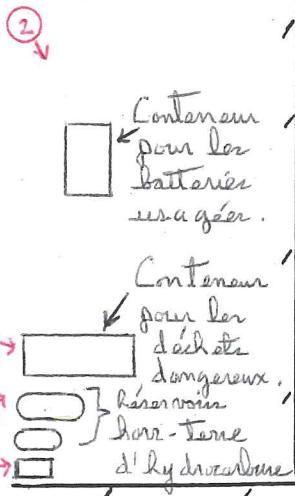 2
Conteneur
pour les
batteries
usagées.
Conteneur
pour les
déchets
dangereux.
Réservoirs
hors-terre
d'hydrocarbure